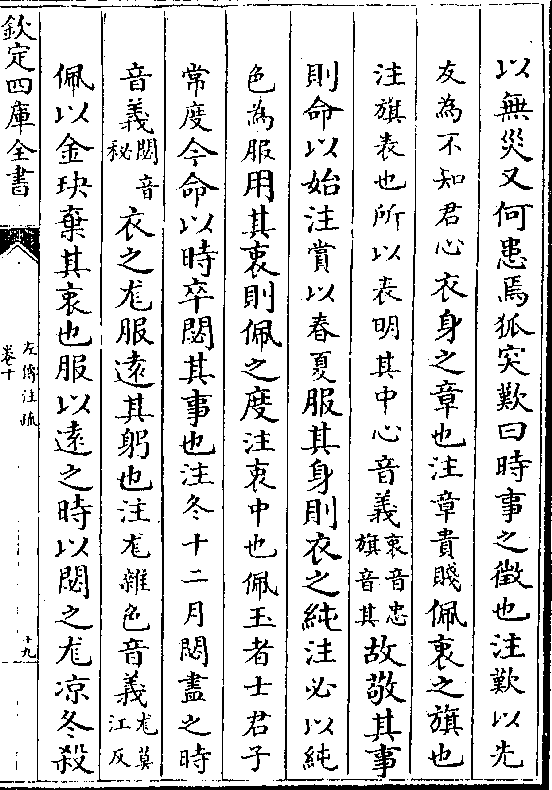 以無災又何患焉狐突歎曰時事之徵也注歎以先
友為不知君心衣身之章也注章貴賤佩衷之旗也
注旗表也所以表明其中心音義衷音忠旗音其故敬其事
則命以始注賞以春夏服其身則衣之純注必以純
色為服用其衷則佩之度注衷中也佩玉者士君子
常度今命以時卒閟其事也注冬十二月閟盡之時
音義閟音秘衣之尨服遠其躬也注尨雜色音義尨莫江反
佩以金玦棄其衷也服以遠之時以閟之尨凉冬殺
欽定四庫全書
左傳注疏
卷十
十九